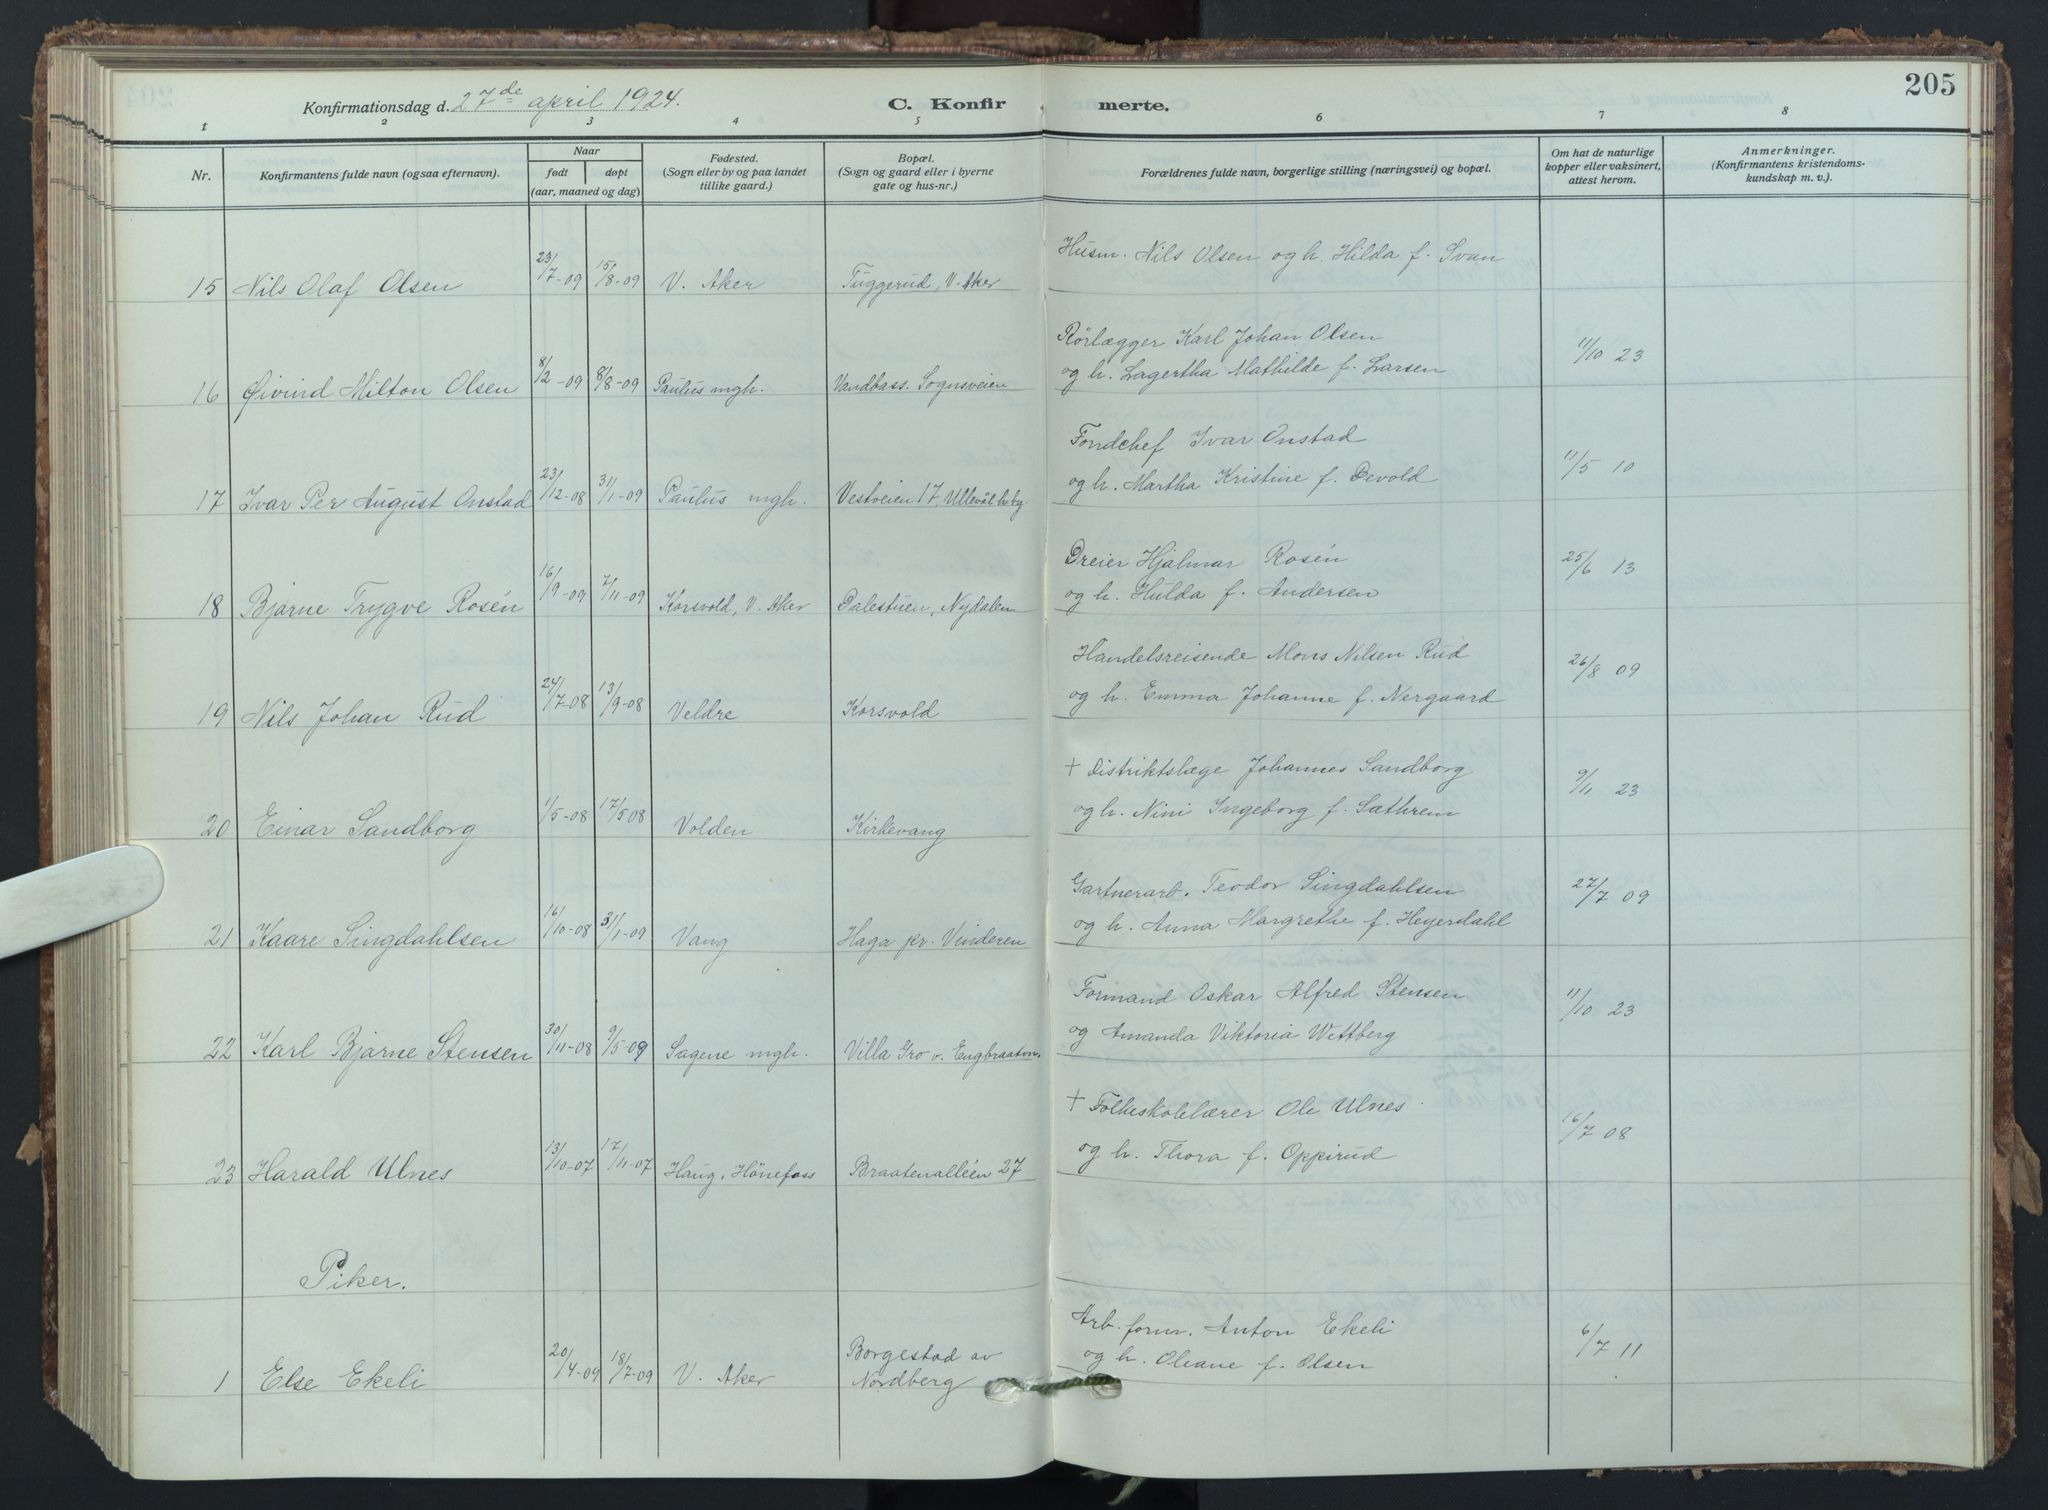 205
Konfirmationsdag d. 27de april 1924.
C. Konfirmerte.
1 2 3 4 5 6 7 8
Nr.
Konfirmantens fulde navn (ogsaa efternavn).
Naar
født døpt
(aar, maaned og dag)
Fødested.
(Sogn eller by og paa landet
tillike gaard.)
Bopæl.
(Sogn og gaard eller i byerne
gate og hus-nr.)
Forældrenes fulde navn, borgerlige stilling (næringsvei) og bopæl.
Om hat de naturlige
kopper eller vaksinert,
attest herom.
Anmerkninger.
(Konfirmantens kristendoms-
kundskap m. v.).
15 Nils Olaf Olsen 23/7-09 15/8-09 V. Aker Tuggerud, V. Aker
Husm. Nils Olsen og h. Hilda f. Svan
16 Øivind Milton Olsen 8/2-09 8/8-09 Paulus mgh. Vandbass. Sognsveien
Rørlægger Karl Johan Olsen
og h. Lagertha Mathilde f. Larsen
11/10 23
17 Ivar Per August Onstad 23/12-08 31/1-09 Paulus mgh. Vestveien 17, Ullevål h.by
Fondchef Ivar Onstad
og h. Martha Kristine f. Devold
11/5 10
18 Bjarne Trygve Rosén 16/9-09 7/11-09 Korsvold, V. Aker Dalestuen, Nydalen
Dreier Hjalmar Rosén
og h. Hulda f. Andersen
25/6 13
19 Nils Johan Rud 24/7-08 13/9-08 Veldre Korsvold
Handelsreisende Mons Nilsen Rud
og h. Emma Johanne f. Nergaard
26/8 09
20 Einar Sandborg 1/5-08 17/5 08 Volden Kirkevang
+ Distriktslæge Johannes Sandborg
og h. Nini Ingeborg f. Sæthrem
9/11 23
21 Kaare Singdahlsen 16/10-08 31/1-09 Vang Haga pr. Vinderen
Gartnerarb. Teodor Singdahlsen
og h. Anna Margrethe f. Heyerdahl
27/7 09
22 Karl Bjarne Stensen 30/11-08 9/5-09 Sagene mgh. Villa Gro v. Engbraaten
Formand Oskar Alfred Stensen
og Amanda Viktoria Wettberg
11/10 23
23 Harald Ulnes 13/10-07 17/11-07 Haug, Hönefoss Braatenalléen 27
+ Folkeskolelærer Ole Ulnes
og h. Thora f. Oppirud
16/7 08
Piker.
1 Else Ekeli 20/4-09 18/7-09 V. Aker Borgestad av
Nordberg
Arb. form. Anton Ekeli
og h. Oleane f. Olsen
6/7 11